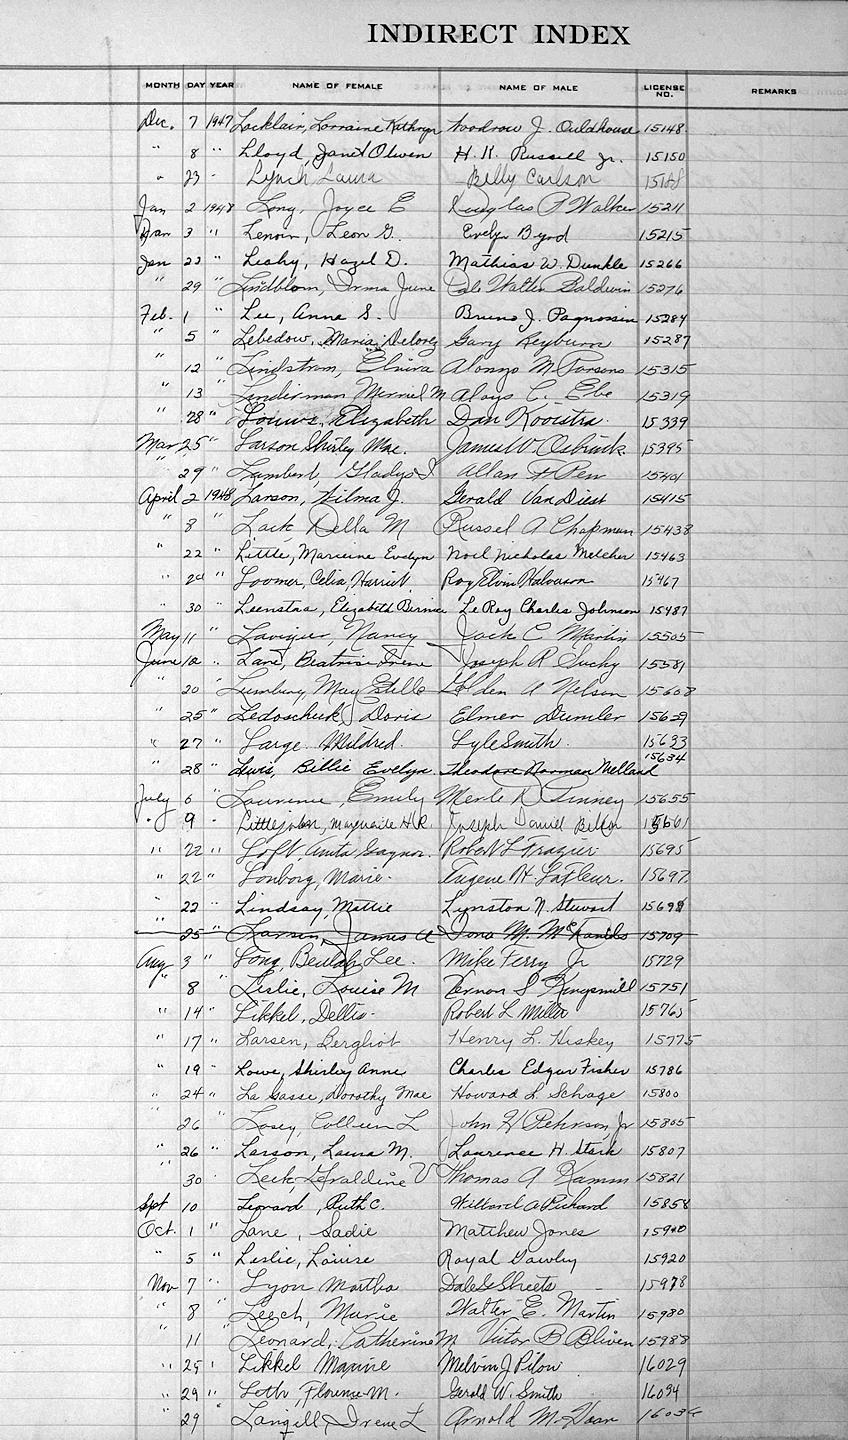 INDIRECT INDEX
MONTH DAY YEAR NAME OF FEMALE NAME OF MALE LICENSE NO. REMARKS
Dec. 7 1947 Locklair, Lorraine Kathryn Woodrow J. Ouldhouse 15148
" 8 " Lloyd, Janet Olwen H. K. Russell Jr. 15150
" 23 " Lynch, Laura Billy Carlson
Jan 2 1948 Long, Joyce E Douglas P Walker 15211
Jan 3 " Lenoir, Leon G. Evelyn Byrd 15215
Jan 23 " Leahy, Hazel D. Mathias W. Dunkle 15266
" 29 " Lindblom, Irma June Dale Walter Baldwin 15276
Feb. 1 " Lee, Anne S. Bruno J. Pagnossin 15284
" 5 " Lebedow, Maria Delorez Gary Reyburn 15287
" 12 " Lindstrom, Elvira Alonzo M. Parsons 15315
" 13 " Linderman Merniel M Aloys C. Ebe 15319
" 28 " Louws, Elizabeth Dan Kooistra 15339
Mar 25 " Larson Shirley Mae. James W 15395
" 29 " Lambert, Gladys I Allan H Pen 15401
April 2 1948 Larson, Wilma J. Gerald Van Diest 15415
" 8 " Lack, Della M Russel A Chapman 15438
" 22 " Little, Evelyn Noel Nicholas Melcher 15463
" " Loomer, Celia Harriet Roy Elvin Halvorson 15467
" 30 " Leenstra, Elizabeth Bernice LeRoy Charles Johnson 15487
May 11 " Lavigur, Nancy Jack C Martin 15505
June 12 " Lane, Beatrice Irene Joseph R Suchy 15581
" 20 " May Estelle Holden A Nelson 15608
" 25 " Ledoschuk, Doris Elmer Dumler 15629
" 27 " Large Mildred. Lyle Smith 15633
" 28 " Lewis, Billie Evelyn. Theodore Norman Melland 15634
July 6 " Laurence, Emily Merle R Tinney 15655
" 9 " Littlejohn, Marguerite H.R. Joseph Daniel
" 22 " Loft, Anita Gaynor. Robert L Frazier 15695
" 22 " Lonborg, Marie. Eugene H. LaFleur. 15697
" 22 " Lindsay, Mattie Lynston N. Stewart 15698
" 25 " Larsen, James A Iona M. McKandles 15709
Aug 3 " Long, Beulah Lee. Mike Ferry Jr 15729
" 8 " Leslie, Louise M Vernon S Kingsmill 15751
" 14 " Likkel, Dellis. Robert L Miller 15765
" 17 " Larsen, Bergliot Henry L. Hiskey 15775
" 19 " Lowe, Shirley Anne Charles Edgar Fisher 15786
" 24 " La Gasse, Dorothy Mae Howard L Schrage 15800
" 26 " Losey, Colleen L John H Pehrson, Jr 15805
" 26 " Larson, Laura M. Laurence H. Stark 15807
" 30 " Leck, Geraldine V Thomas A Kamm 15821
Sept 10 Leonard, Ruth C. Willard A Pickard 15858
Oct. 1 " Lane, Sadie Matthew Jones
" 5 " Leslie, Louise Royal Gawley 15920
Nov 7 " Lyon Martha Dale G Sheets 15978
" 8 " Leech, Marie Walter E. Martin 15980
" 11 " Leonard, Catherine M Victor B Bliven 15988
" 25 " Likkel Maxine Melvin J Pilow 16029
" 29 " Loth, Florence M. Gerald W. Smith 16034
" 29 " Langill, Irene L Arnold M. Haan